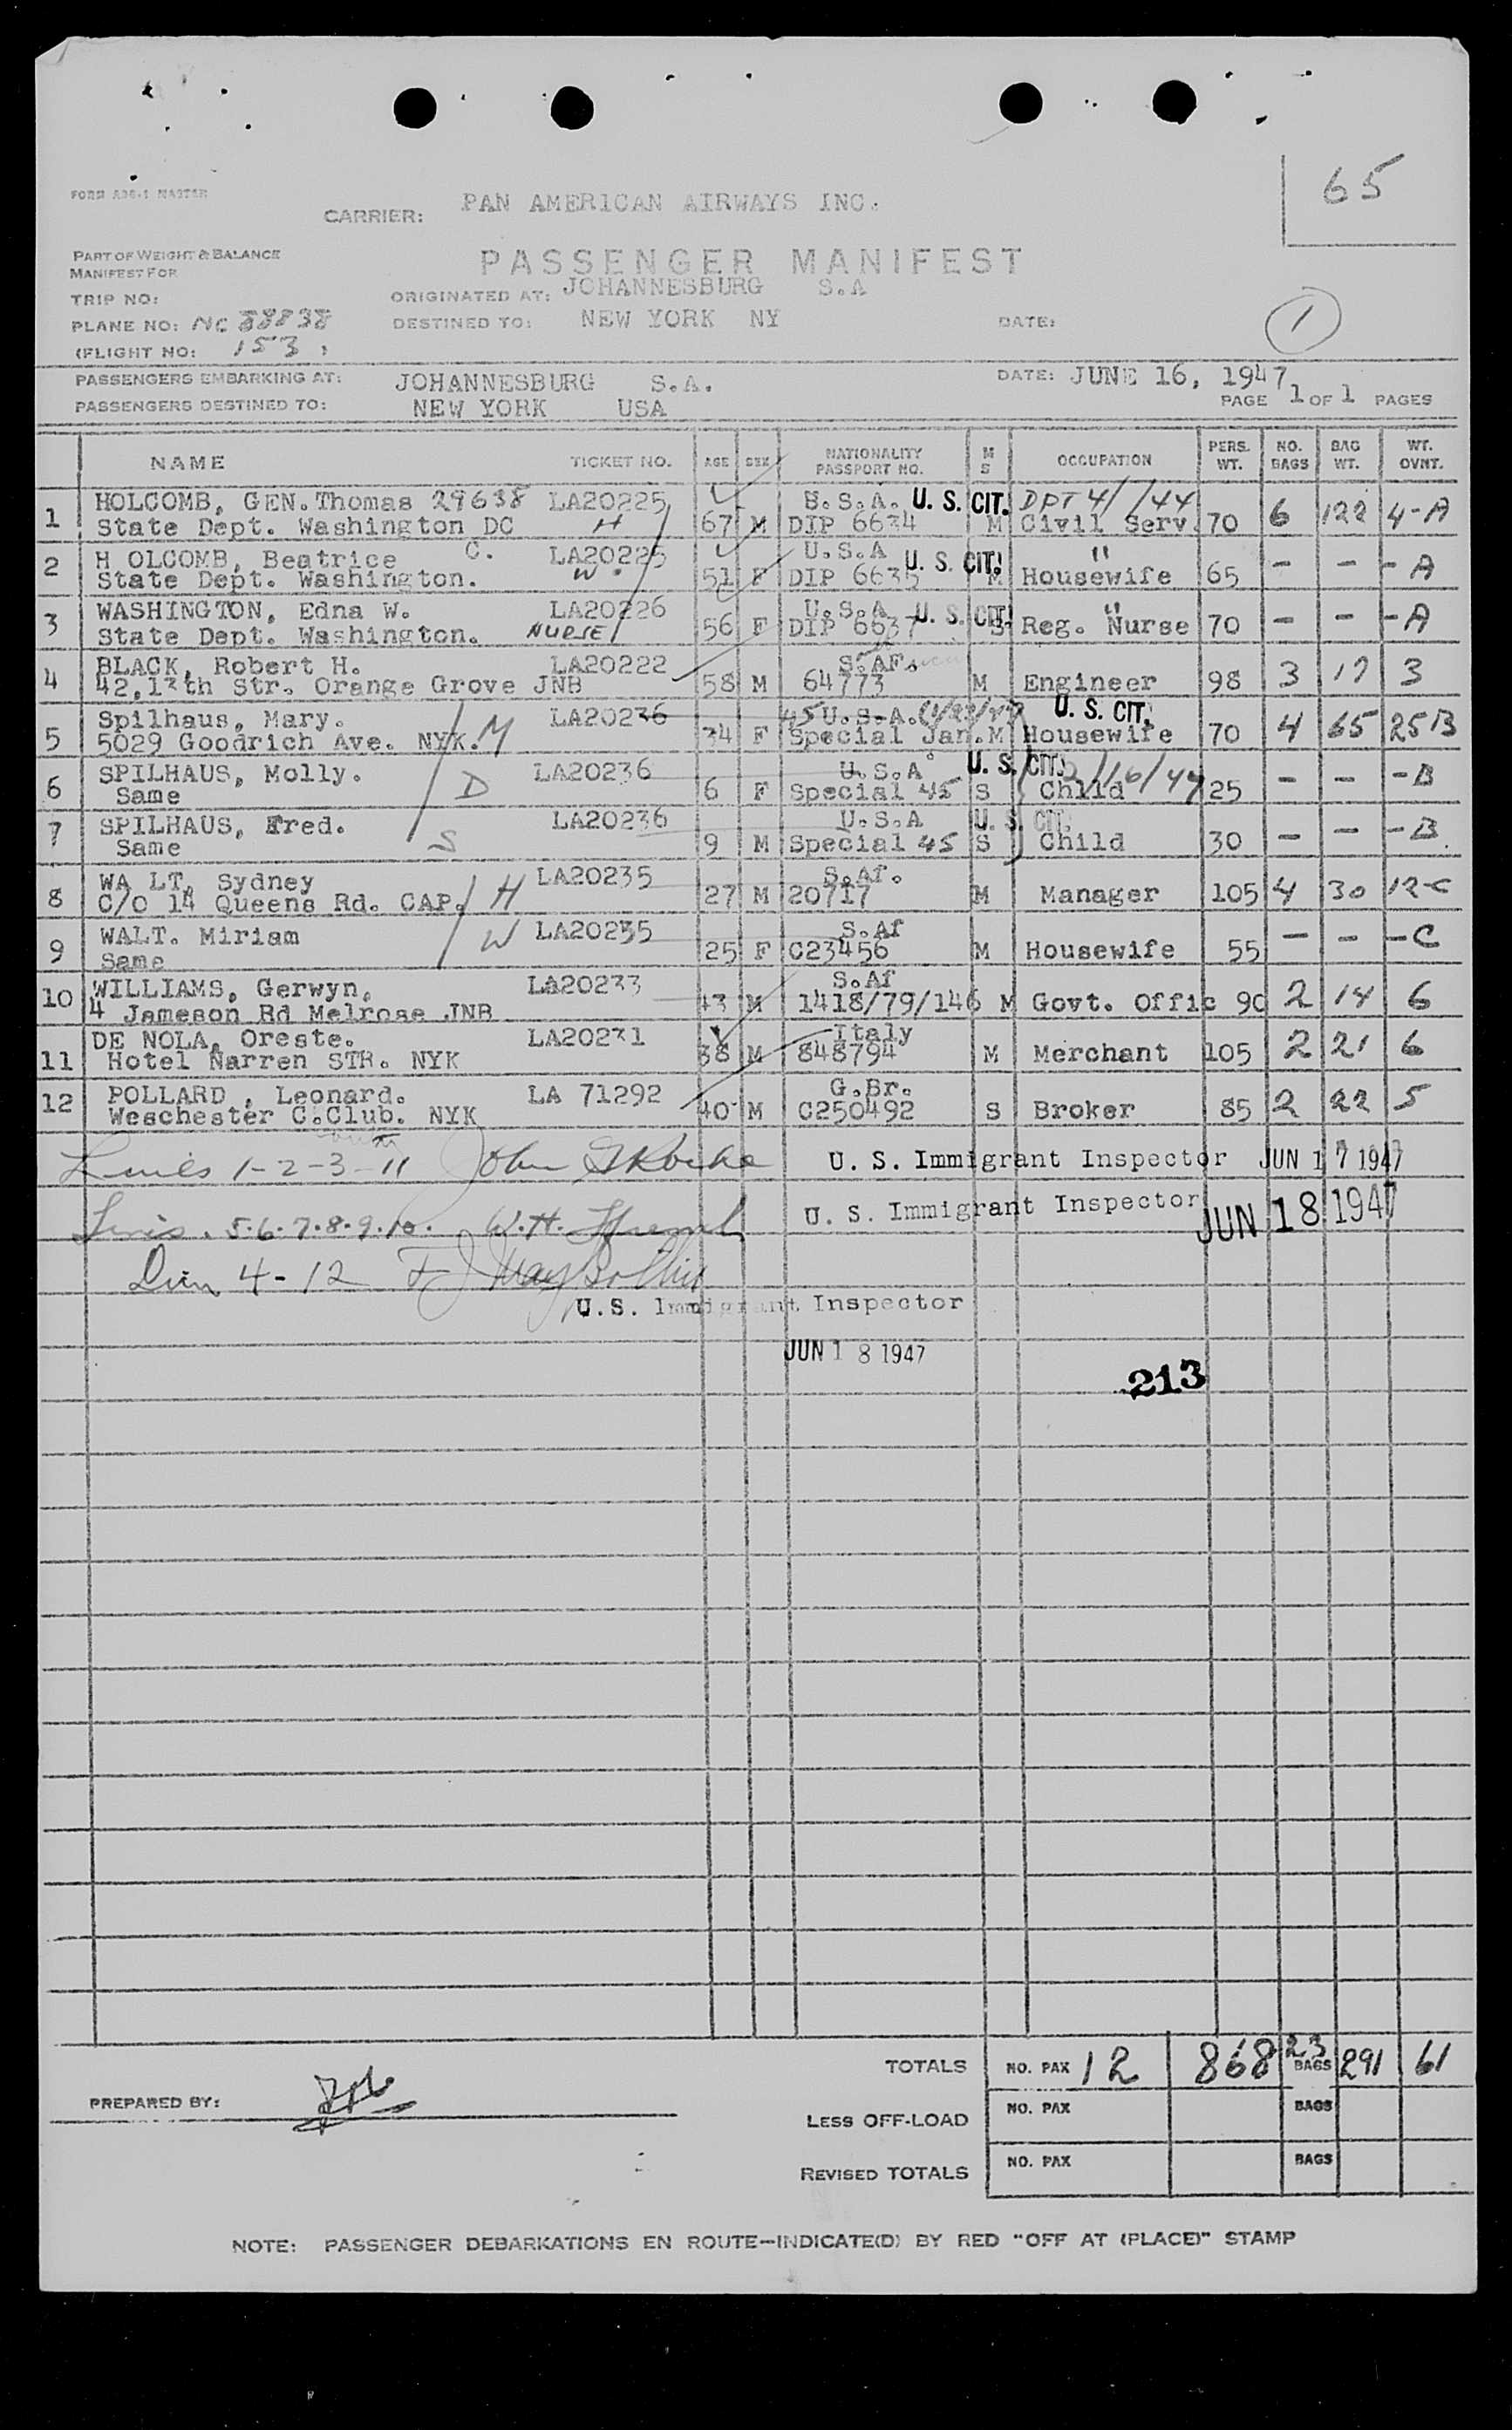 65
FORM
CARRIER: PAN AMERICAN AIRWAYS INC.
PART OF WEIGHT & BALANCE
MANIFEST FOR
PASSENGER MANIFEST
TRIP NO:
ORIGINATED AT: JOHANNESBURG S.A
PLANE NO: NC 88838
DESTINED TO: NEW YORK NY
DATE:
1
(FLIGHT NO: 153)
PASSENGERS EMBARKING AT: JOHANNESBURG S.A.
DATE: JUNE 16, 1947
PASSENGERS DESTINED TO: NEW YORK USA
PAGE 1 OF 1 PAGES
NAME TICKET NO. AGE SEX NATIONALITY PASSPORT NO. M S OCCUPATION PERS. WT. NO. BAGS BAG WT. WT. OVNT.
1 HOLCOMB, GEN. Thomas 29638 LA20225 U.S.A. U. S. CIT. DPT 4/ /44
State Dept. Washington DC H 67 M DIP 6634 M Civil Serv. 70 6 122 4-A
2 H OLCOMB, Beatrice C. LA20225 U.S.A U. S. CIT. "
State Dept. Washington. W. 51 F DIP 6635 M Housewife 65 - - - A
3 WASHINGTON, Edna W. LA20226 U.S.A U. S. CIT. "
State Dept. Washington. NURSE 56 F DIP 6637 S Reg. Nurse 70 - - - A
4 BLACK, Robert H. LA20222 S. AF.
42,13th Str. Orange Grove JNB 58 M 64773 M Engineer 98 3 17 3
5 Spilhaus, Mary. LA20236 45 U.S.A. U. S. CIT.
5029 Goodrich Ave. NYK. M 34 F Special Jan. M Housewife 70 4 65 25B
6 SPILHAUS, Molly. LA20236 U.S.A U. S. CIT. 2/16/44
Same D 6 F Special 45 S Child 25 - - - B
7 SPILHAUS, Fred. LA20236 U.S.A U. S. CIT.
Same S 9 M Special 45 S Child 30 - - - B
8 WA LT, Sydney LA20235 S.Af.
C/O 14 Queens Rd. CAP. H 27 M 20717 M Manager 105 4 30 12-C
9 WALT. Miriam W LA20235 S.Af
Same 25 F C23456 M Housewife 55 - - - C
10 WILLIAMS, Gerwyn, LA20233 S.Af
4 Jameson Rd Melrose JNB 43 M 1418/79/146 M Govt. Offic 90 2 14 6
11 DE NOLA, Oreste. LA20231 Italy
Hotel Narren STR. NYK 38 M 848794 M Merchant 105 2 21 6
12 POLLARD , Leonard. LA 71292 G.Br.
Weschester C.Club. NYK 40 M C250492 S Broker 85 2 22 5
Lines 1-2-3-11 John U. S. Immigrant Inspector JUN 17 1947
Lines. 5.6.7.8.9.10. W.H. U. S. Immigrant Inspector JUN 18 1947
Lin 4-12
U.S. Immigrant Inspector
JUN 18 1947
213
TOTALS NO. PAX 12 868 23 BAGS 291 61
PREPARED BY:
LESS OFF-LOAD NO. PAX BAGS
REVISED TOTALS NO. PAX BAGS
NOTE: PASSENGER DEBARKATIONS EN ROUTE—INDICATE(D) BY RED "OFF AT (PLACE)" STAMP